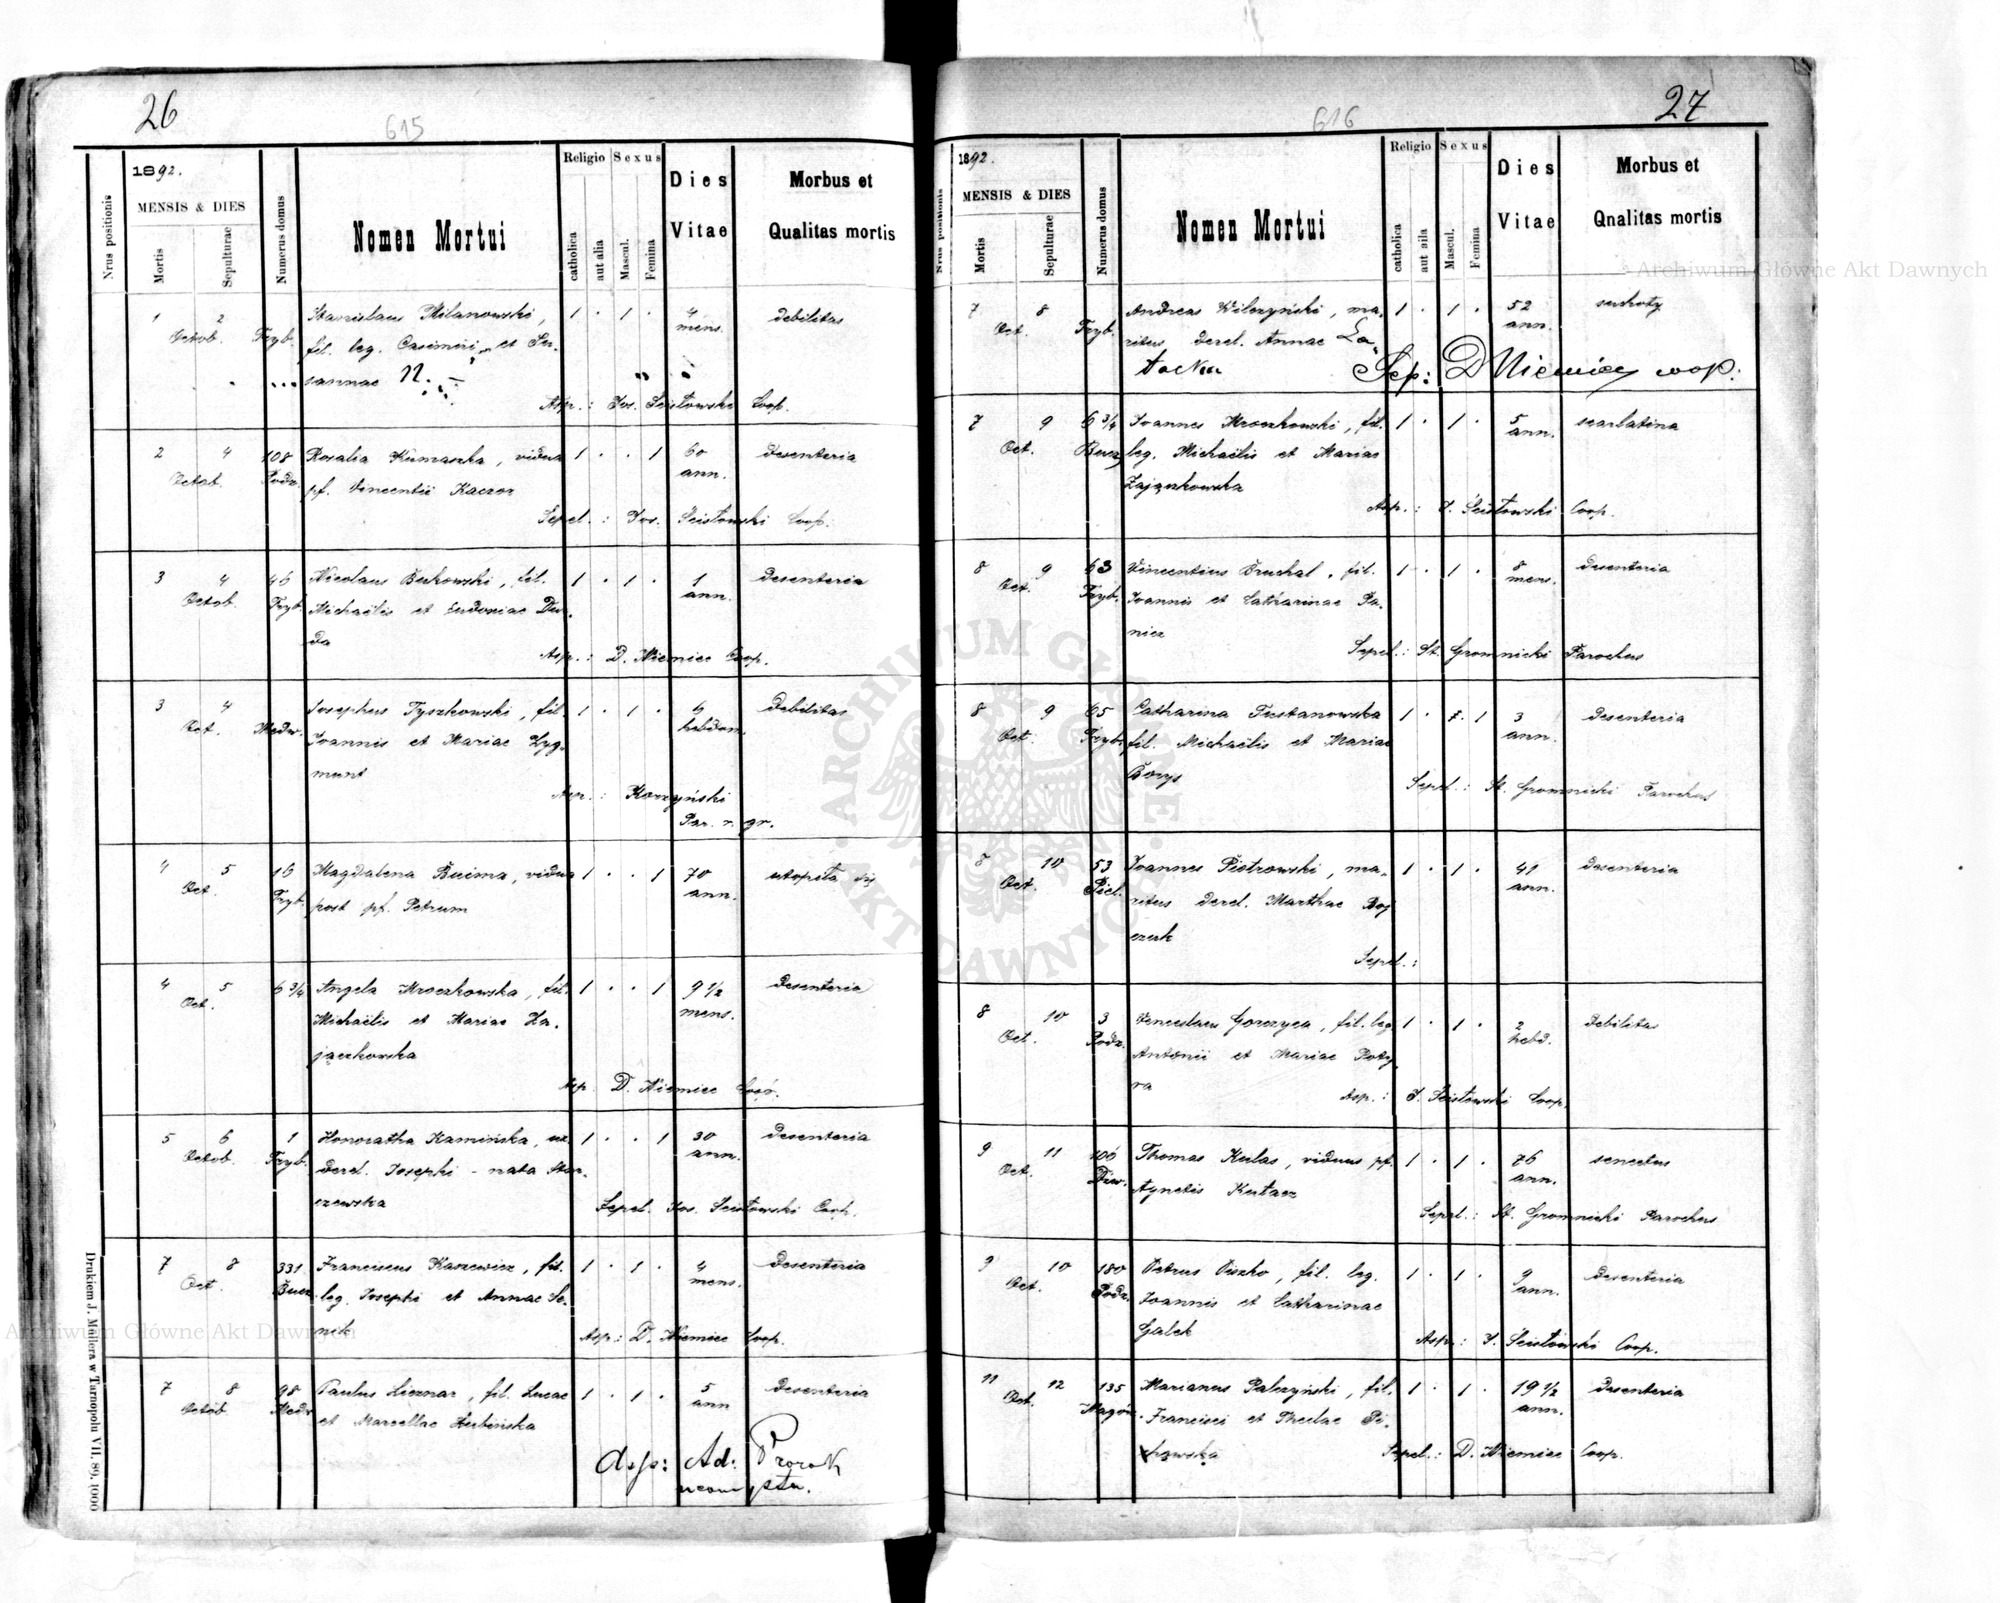 26
615
1892.
Nrus positionis
MENSIS & DIES
Mortis
Sepulturae
Numerus domus
Nomen Mortui
Religio
catholica
aut alia
Sexus
Mascul.
Femina
Dies
Vitae
Morbus et
Qualitas mortis
1 2 Stanislaus Milanowski, 1 . 1 . 4 debilitas
Octob. Tryb. fil. leg. Casimiri et Su- mens.
sannae N.
Asp.: Jos. Scisłowski Coop.
2 4 108 Rosalia Kumaszka, vidua 1 . . 1 60 desenteria
Octob. Podz. pf. Vincentii Kaczor ann.
Sepel.: Jos. Scisłowski Coop.
3 4 46 Nicolaus Bukowski, fil. 1 . 1 . 1 desenteria
Octob. Tryb. Michaëlis et Eudoxiae Du- ann.
da
Asp.: D. Niemiec Coop.
3 4 Josephus Tyszkowski, fil. 1 . 1 . 6 debilitas
Oct. Medw. Joannis et Mariae Zyg- hebdom.
munt
Asp.: Korzyński
Par. r. gr.
4 5 16 Magdalena Buima, vidua 1 . . 1 70 utopiła się
Oct. Tryb. post pf. Petrum ann.
4 5 6 3/4 Angela Mroczkowska, fil. 1 . . 1 9 1/2 desenteria
Oct. Michaëlis et Mariae Za- mens.
jączkowska
Asp. D. Niemiec Coop.
5 6 1 Honoratha Kamińska, ux. 1 . . 1 30 desenteria
Octob. Tryb. derel. Josephi - nata Star- ann.
czewska
Sepel. Jos. Scisłowski Coop.
7 8 331 Franciscus Kaszewicz, fil. 1 . 1 . 4 desenteria
Oct. Bucz. leg. Josephi et Annae Se- mens.
nik
Asp.: D. Niemiec Coop.
7 8 98 Paulus Licznar, fil. Lucae 1 . 1 . 5 desenteria
Octob. Medw. et Marcellae Hubińska ann
Asp: Ad: Prorok
neomysta.
Drukiem J. Mellera w Tarnopolu VII. 89. 1000
27
616
1892.
Nrus positionis
MENSIS & DIES
Mortis
Sepulturae
Numerus domus
Nomen Mortui
Religio
catholica
aut aila
Sexus
Mascul.
Femina
Dies
Vitae
Morbus et
Qnalitas mortis
7 8 Andreas Wilczyński, ma- 1 . 1 . 52 suchoty
Oct. Tryb. ritus derel. Annae La- ann.
tocka Sep: D Niemiec coop:
7 9 6 3/4 Joannes Mroczkowski, fil. 1 . 1 . 5 scarlatina
Oct. Bucz. leg. Michaëlis et Mariae ann.
Zajączkowska
Asp.: J. Scisłowski Coop.
8 9 63 Vincentius Bruchal, fil. 1 . 1 . 8 desenteria
Oct. Tryb. Joannis et Catharinae Pa- mens.
nicz
Sepel.: St. Gromnicki Parochus
8 9 65 Catharina Tustanowska 1 . . 1 3 desenteria
Oct. Tryb. fil. Michaëlis et Mariae ann.
Borys
Sepel.: St. Gromnicki Parochus
8 10 53 Joannes Piotrowski, ma- 1 . 1 . 41 desenteria
Oct. Piel. ritus derel. Marthae Boj ann.
czuk
Sepel.:
8 10 3 Venceslaus Gorczyca, fil. leg. 1 . 1 . 2 debilitas
Oct. Podz. Antonii et Mariae Poty- hebd.
ra
Asp.: J. Scisłowski Coop.
9 11 106 Thomas Kulas, viduus pf. 1 . 1 . 76 senectus
Oct. Dzw. Agnetis Kurtacz ann.
Sepel.: St. Gromnicki Parochus
9 10 180 Petrus Piszko, fil. leg. 1 . 1 . 9 desenteria
Oct. Podz. Joannis et Catharinae ann.
Galek
Asp.: J. Scisłowski Coop.
11 12 135 Marianus Palczyński, fil. 1 . 1 . 19 1/2 desenteria
Oct. Nagór. Francisci et Theclae Pi- ann.
Sepel.: D. Niemiec Coop.
Archiwum Główne Akt Dawnych
Archiwum Główne Akt Dawnych
ARCHIWUM GŁÓWNE AKT DAWNYCH